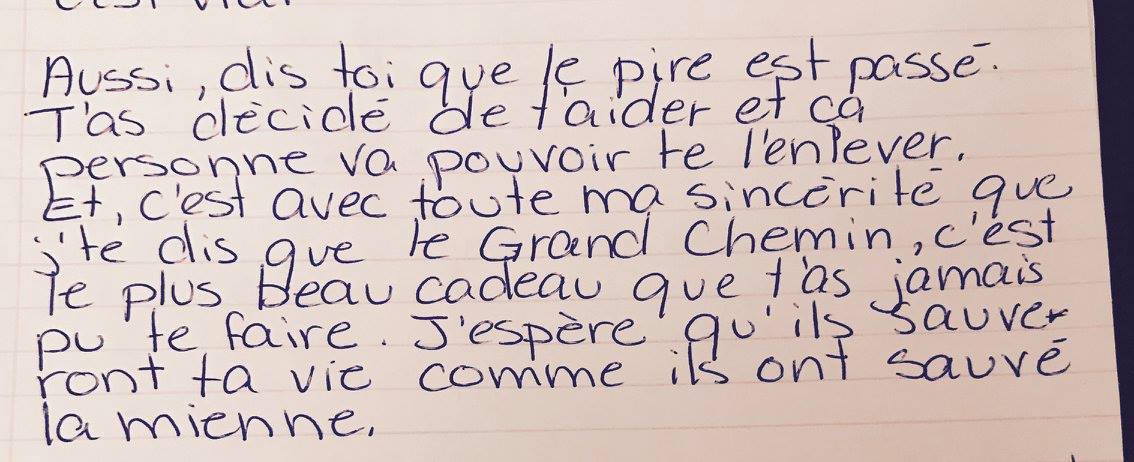 Aussi, dis toi que le pire est passé.
T'as décidé de t'aider et ça
personne va pouvoir te l'enlever.
Et, c'est avec toute ma sincérité que
j'te dis que le Grand Chemin, c'est
le plus beau cadeau que t'as jamais
pu te faire. J'espère qu'ils sauver
ront ta vie comme ils ont sauvé
la mienne.